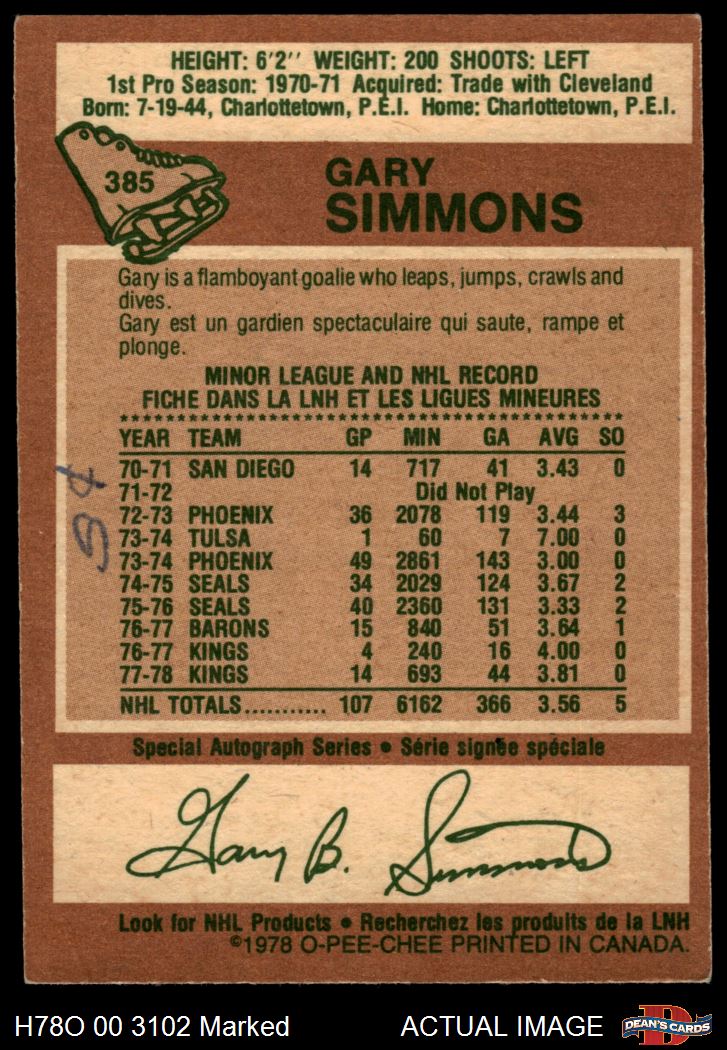 HEIGHT: 6'2'' WEIGHT: 200 SHOOTS: LEFT
1st Pro Season: 1970-71 Acquired: Trade with Cleveland
Born: 7-19-44, Charlottetown, P.E.I. Home: Charlottetown, P.E.I.
385
GARY
SIMMONS
Gary is a flamboyant goalie who leaps, jumps, crawls and
dives.
Gary est un gardien spectaculaire qui saute, rampe et
plonge.
MINOR LEAGUE AND NHL RECORD
FICHE DANS LA LNH ET LES LIGUES MINEURES
YEAR TEAM GP MIN GA AVG SO
70-71 SAN DIEGO 14 717 41 3.43 0
71-72 Did Not Play
72-73 PHOENIX 36 2078 119 3.44 3
73-74 TULSA 1 60 7 7.00 0
73-74 PHOENIX 49 2861 143 3.00 0
74-75 SEALS 34 2029 124 3.67 2
75-76 SEALS 40 2360 131 3.33 2
76-77 BARONS 15 840 51 3.64 1
76-77 KINGS 4 240 16 4.00 0
77-78 KINGS 14 693 44 3.81 0
NHL TOTALS........... 107 6162 366 3.56 5
Special Autograph Series • Série signée spéciale
Gary B. Simmons
Look for NHL Products • Recherchez les produits de la LNH
©1978 O-PEE-CHEE PRINTED IN CANADA.
H78O 00 3102 Marked ACTUAL IMAGE
D
DEAN'S CARDS